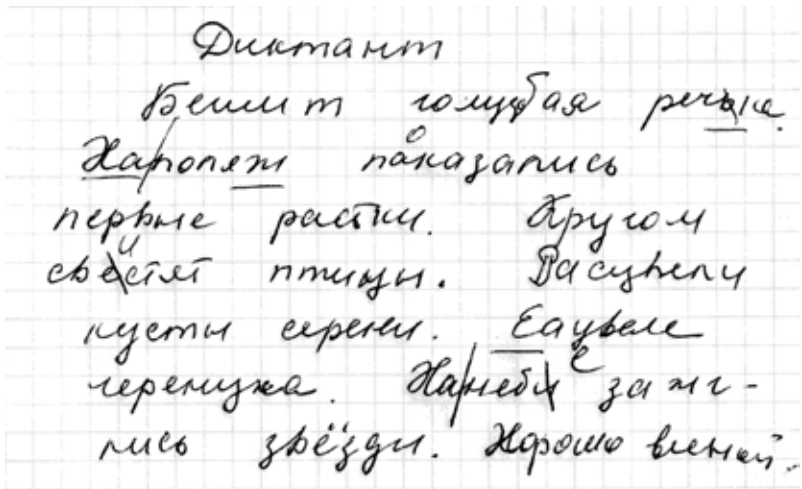 Диктант
Бешит голубая речька.
Наполяж показались
первые растки. Кругом
свистят птицы. Расцвели
кусты серени. Еацвеле
черемуха. На небе зажг-
лись звёзди. Хорошо вѣсной.